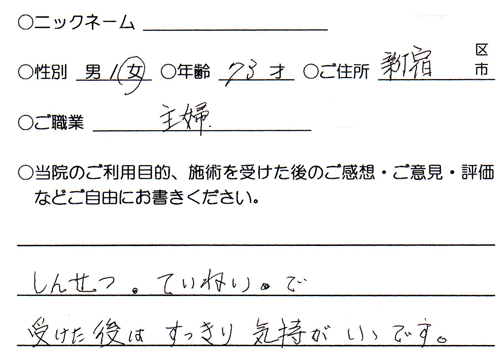 ○ニックネーム
○性別 男 / 女 ○年齢 73 才 ○ご住所 新宿 区市
○ご職業 主婦
○当院のご利用目的、施術を受けた後のご感想・ご意見・評価
などご自由にお書きください。
しんせつ。ていねい。で
受けた後は すっきり 気持が いいです。